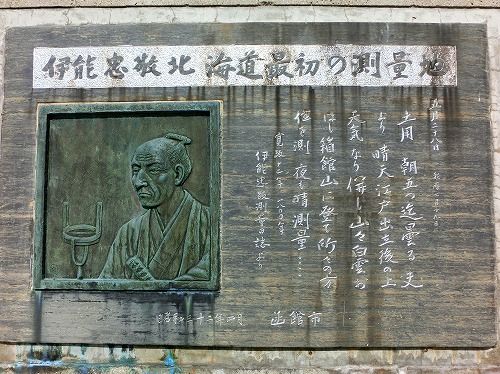 伊能忠敬北海道最初の測量地
五月二十八日
朝五つ迄曇る 夫
より晴天江戸出立後の上
天気なり 併し山々白雲お
ほし箱館山に登て所々の方
位を測 夜も晴測量……
寛政十二年 一八〇〇年
伊能忠敬測量日誌より
昭和三十二年 月 函館市